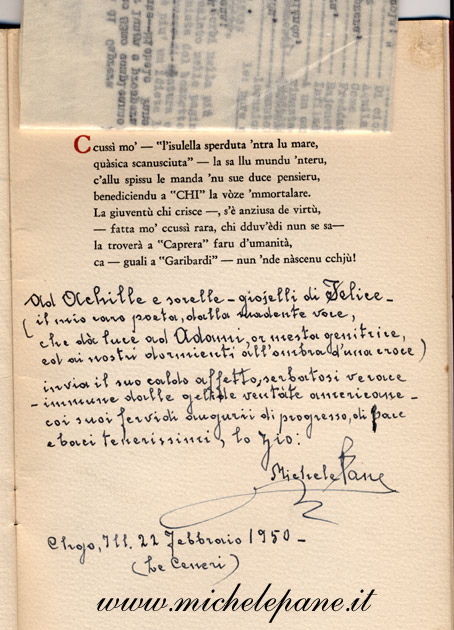 Ccussì mo' — "l'isulella sperduta 'ntra lu mare,
quàsica scanusciuta" — la sa llu mundu 'nteru,
c'allu spissu le manda 'nu sue duce pensieru,
benediciendu a "CHI" la vòze 'mmortalare.
La giuventù chi crisce —, s'è anziusa de virtù,
— fatta mo' ccussì rara, chi dduv'èdi nun se sa—
la troverà a "Caprera" faru d'umanità,
ca — guali a "Garibardi" — nun 'nde nàscenu cchjù!
Ad Achille e sorelle - giojelli di Felice -
(il mio caro poeta, dalla suadente voce,
che dà luce ad Adami, or mesta genitrice,
ed ai nostri dormienti all'ombra d'una croce)
invia il suo caldo affetto, serbatosi verace
- immune dalle gelide ventate americane -
coi suoi fervidi augurii di progresso, di pace
e baci tenerissimi, lo zio:
Michele Pane
Chgo, Ill. 22 Febbraio 1950 -
(Le Ceneri)
www.michelepane.it